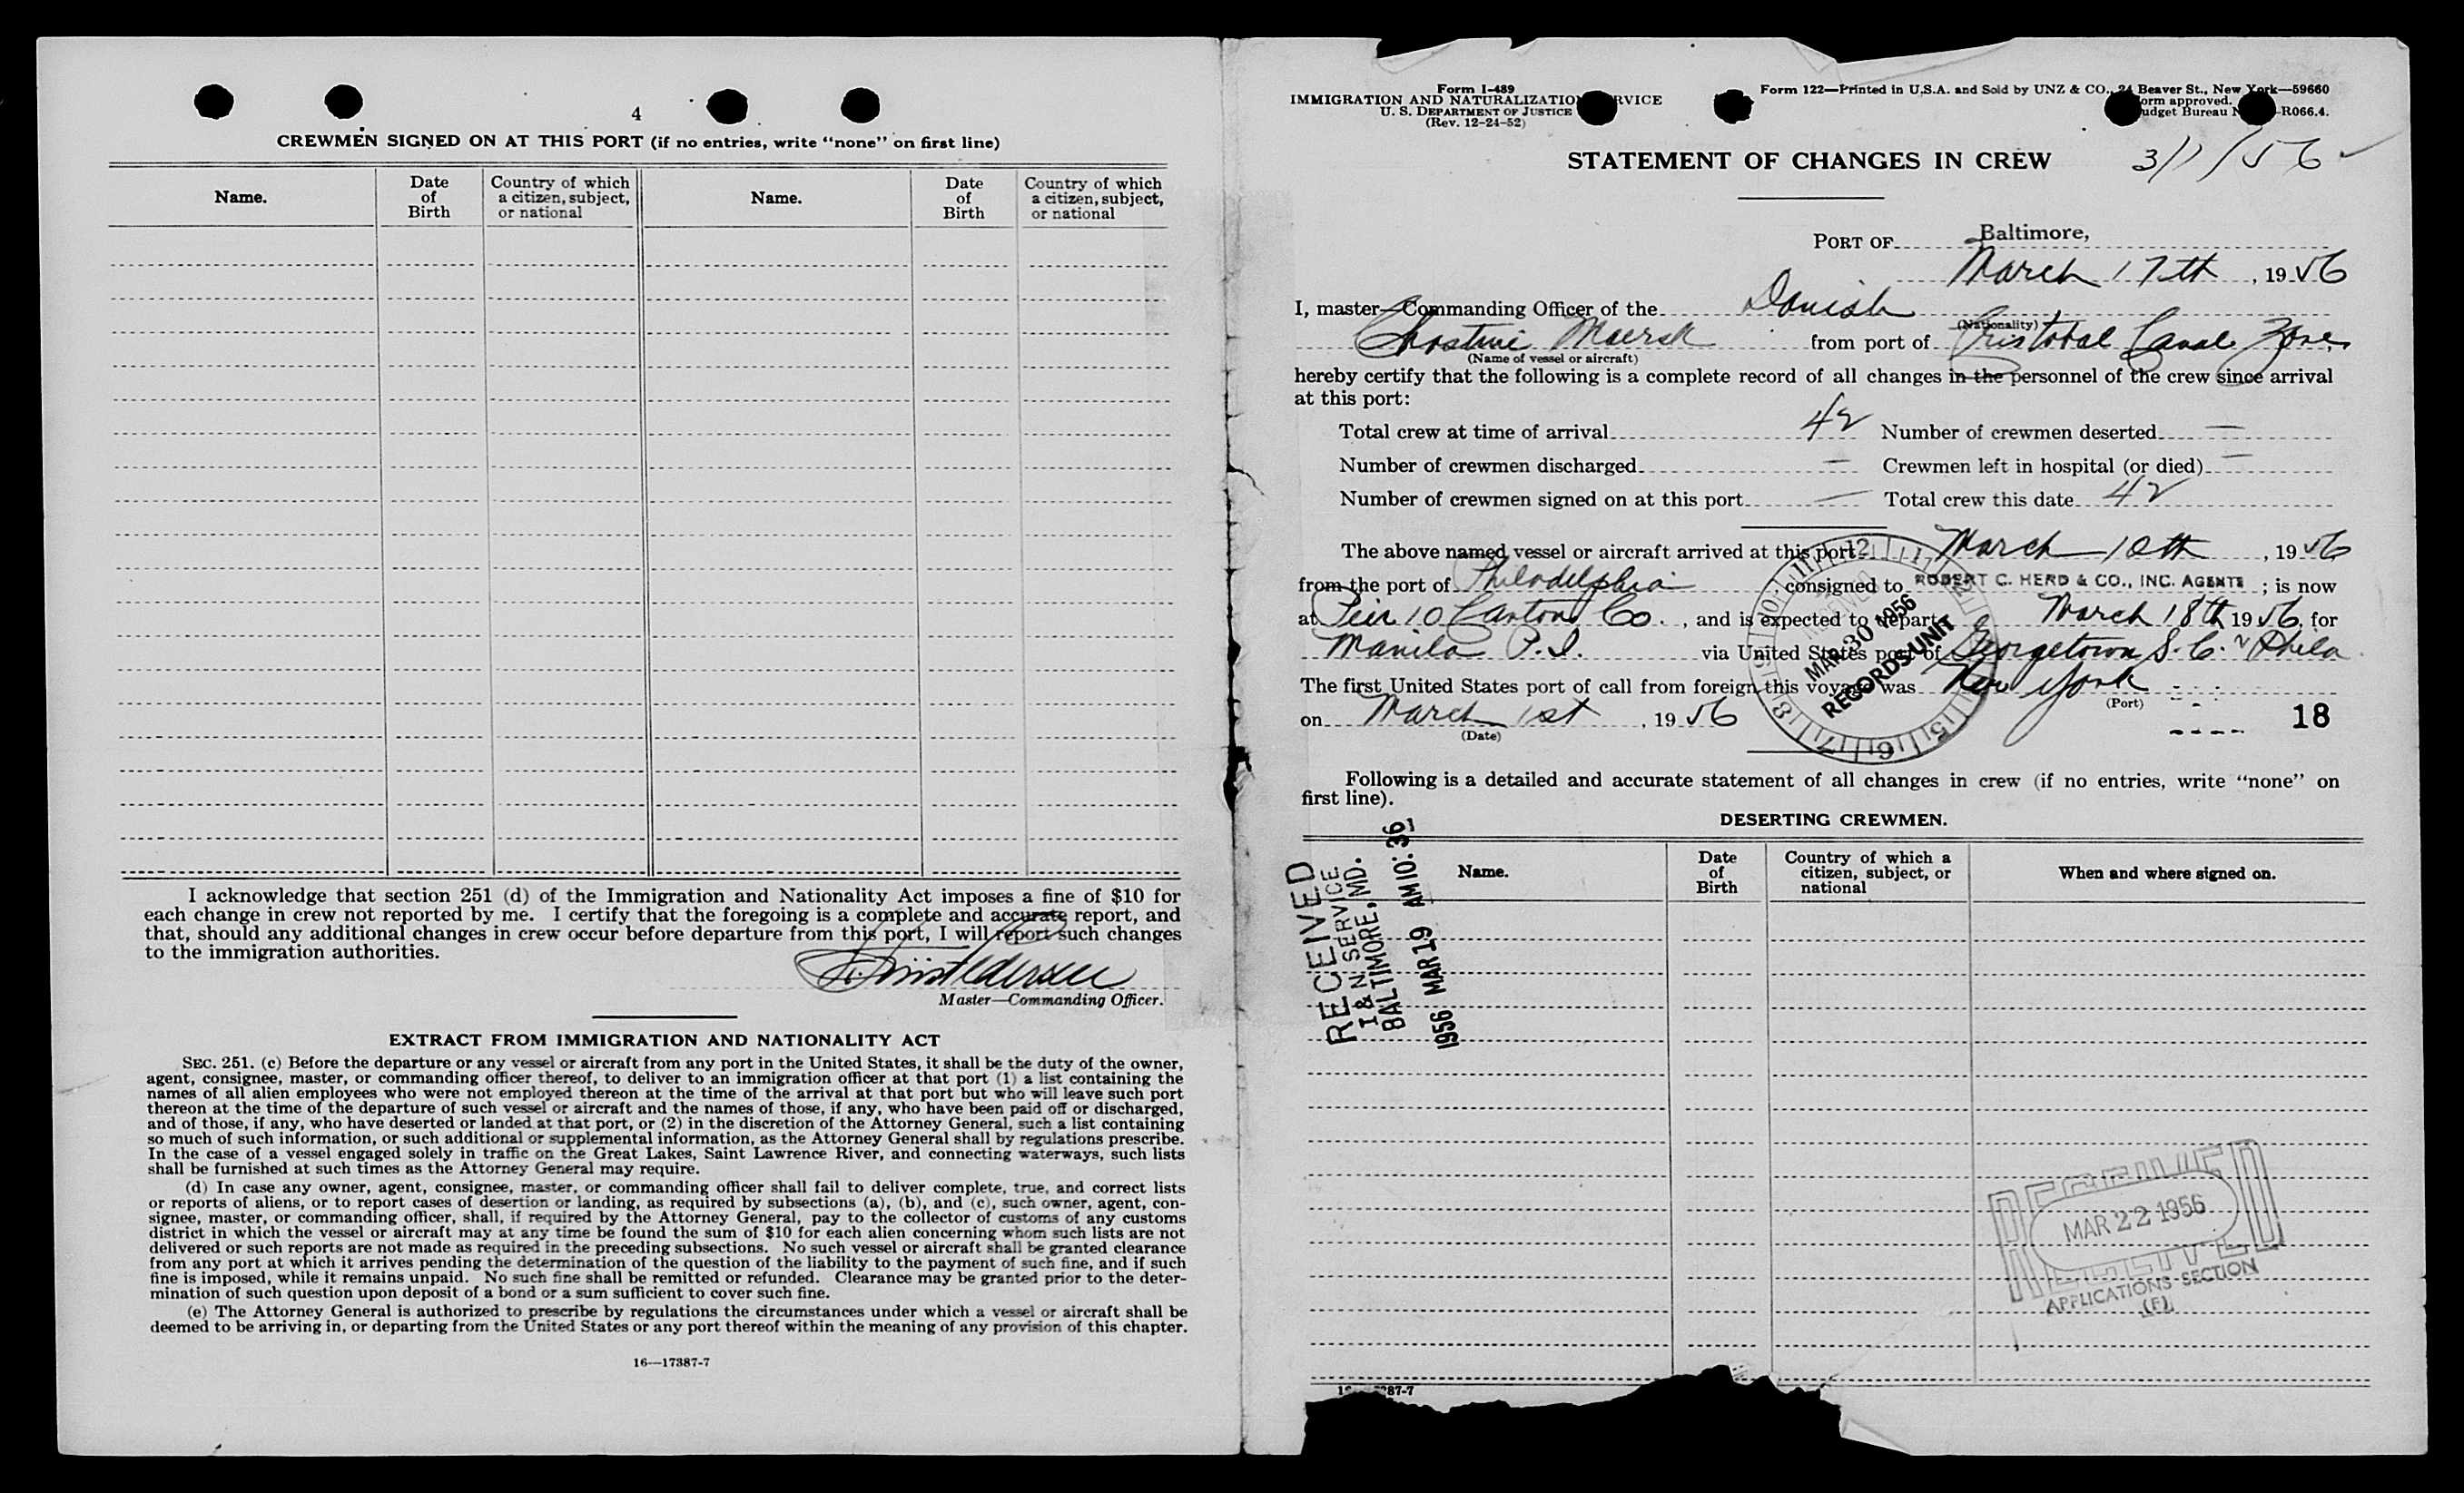 4
CREWMEN SIGNED ON AT THIS PORT (if no entries, write "none" on first line)
Name.
Date
of
Birth
Country of which
a citizen, subject,
or national
Name.
Date
of
Birth
Country of which
a citizen, subject,
or national
I acknowledge that section 251 (d) of the Immigration and Nationality Act imposes a fine of $10 for
each change in crew not reported by me. I certify that the foregoing is a complete and accurate report, and
that, should any additional changes in crew occur before departure from this port, I will report such changes
to the immigration authorities.
Master—Commanding Officer.
EXTRACT FROM IMMIGRATION AND NATIONALITY ACT
SEC. 251. (c) Before the departure or any vessel or aircraft from any port in the United States, it shall be the duty of the owner,
agent, consignee, master, or commanding officer thereof, to deliver to an immigration officer at that port (1) a list containing the
names of all alien employees who were not employed thereon at the time of the arrival at that port but who will leave such port
thereon at the time of the departure of such vessel or aircraft and the names of those, if any, who have been paid off or discharged,
and of those, if any, who have deserted or landed at that port, or (2) in the discretion of the Attorney General, such a list containing
so much of such information, or such additional or supplemental information, as the Attorney General shall by regulations prescribe.
In the case of a vessel engaged solely in traffic on the Great Lakes, Saint Lawrence River, and connecting waterways, such lists
shall be furnished at such times as the Attorney General may require.
(d) In case any owner, agent, consignee, master, or commanding officer shall fail to deliver complete, true, and correct lists
or reports of aliens, or to report cases of desertion or landing, as required by subsections (a), (b), and (c), such owner, agent, con-
signee, master, or commanding officer, shall, if required by the Attorney General, pay to the collector of customs of any customs
district in which the vessel or aircraft may at any time be found the sum of $10 for each alien concerning whom such lists are not
delivered or such reports are not made as required in the preceding subsections. No such vessel or aircraft shall be granted clearance
from any port at which it arrives pending the determination of the question of the liability to the payment of such fine, and if such
fine is imposed, while it remains unpaid. No such fine shall be remitted or refunded. Clearance may be granted prior to the deter-
mination of such question upon deposit of a bond or a sum sufficient to cover such fine.
(e) The Attorney General is authorized to prescribe by regulations the circumstances under which a vessel or aircraft shall be
deemed to be arriving in, or departing from the United States or any port thereof within the meaning of any provision of this chapter.
16—17387-7
Form I-489
IMMIGRATION AND NATURALIZATIO RVICE
U. S. DEPARTMENT OF JUSTICE
(Rev. 12-24-52)
Form 122—Printed in U.S.A. and Sold by UNZ & CO., 24 Beaver St., New York—59660
orm approved.
udget Bureau N -R066.4.
STATEMENT OF CHANGES IN CREW 3/1/56
PORT OF Baltimore,
March 17th, 1956
I, master—Commanding Officer of the Danish
(Nationality)
Chastine Maersk from port of Cristobal Canal Zone,
(Name of vessel or aircraft)
hereby certify that the following is a complete record of all changes in the personnel of the crew since arrival
at this port:
Total crew at time of arrival 42 Number of crewmen deserted —
Number of crewmen discharged — Crewmen left in hospital (or died) —
Number of crewmen signed on at this port — Total crew this date 42
The above named vessel or aircraft arrived at this port March 10th, 1956
from the port of Philadelphia consigned to ROBERT C. HERD & CO., INC. AGENTS ; is now
at Pier 10 Canton Co., and is expected to depart March 18th 1956, for
Manila P.I. via United States port of Georgetown S.C. Phila
The first United States port of call from foreign this voyage was New York
(Port)
on March 1st, 1956
(Date)
18
RECEIVED
MAR 30 1956
RECORDS UNIT
12 1 2 5 6 7 8 9 10 11
Following is a detailed and accurate statement of all changes in crew (if no entries, write "none" on
first line).
DESERTING CREWMEN.
Name.
Date
of
Birth
Country of which a
citizen, subject, or
national
When and where signed on.
RECEIVED
I & N SERVICE
BALTIMORE, MD.
1956 MAR 19 AM 10:36
RECEIVED
MAR 22 1956
RECEIVED
APPLICATIONS SECTION
(F)
87-7